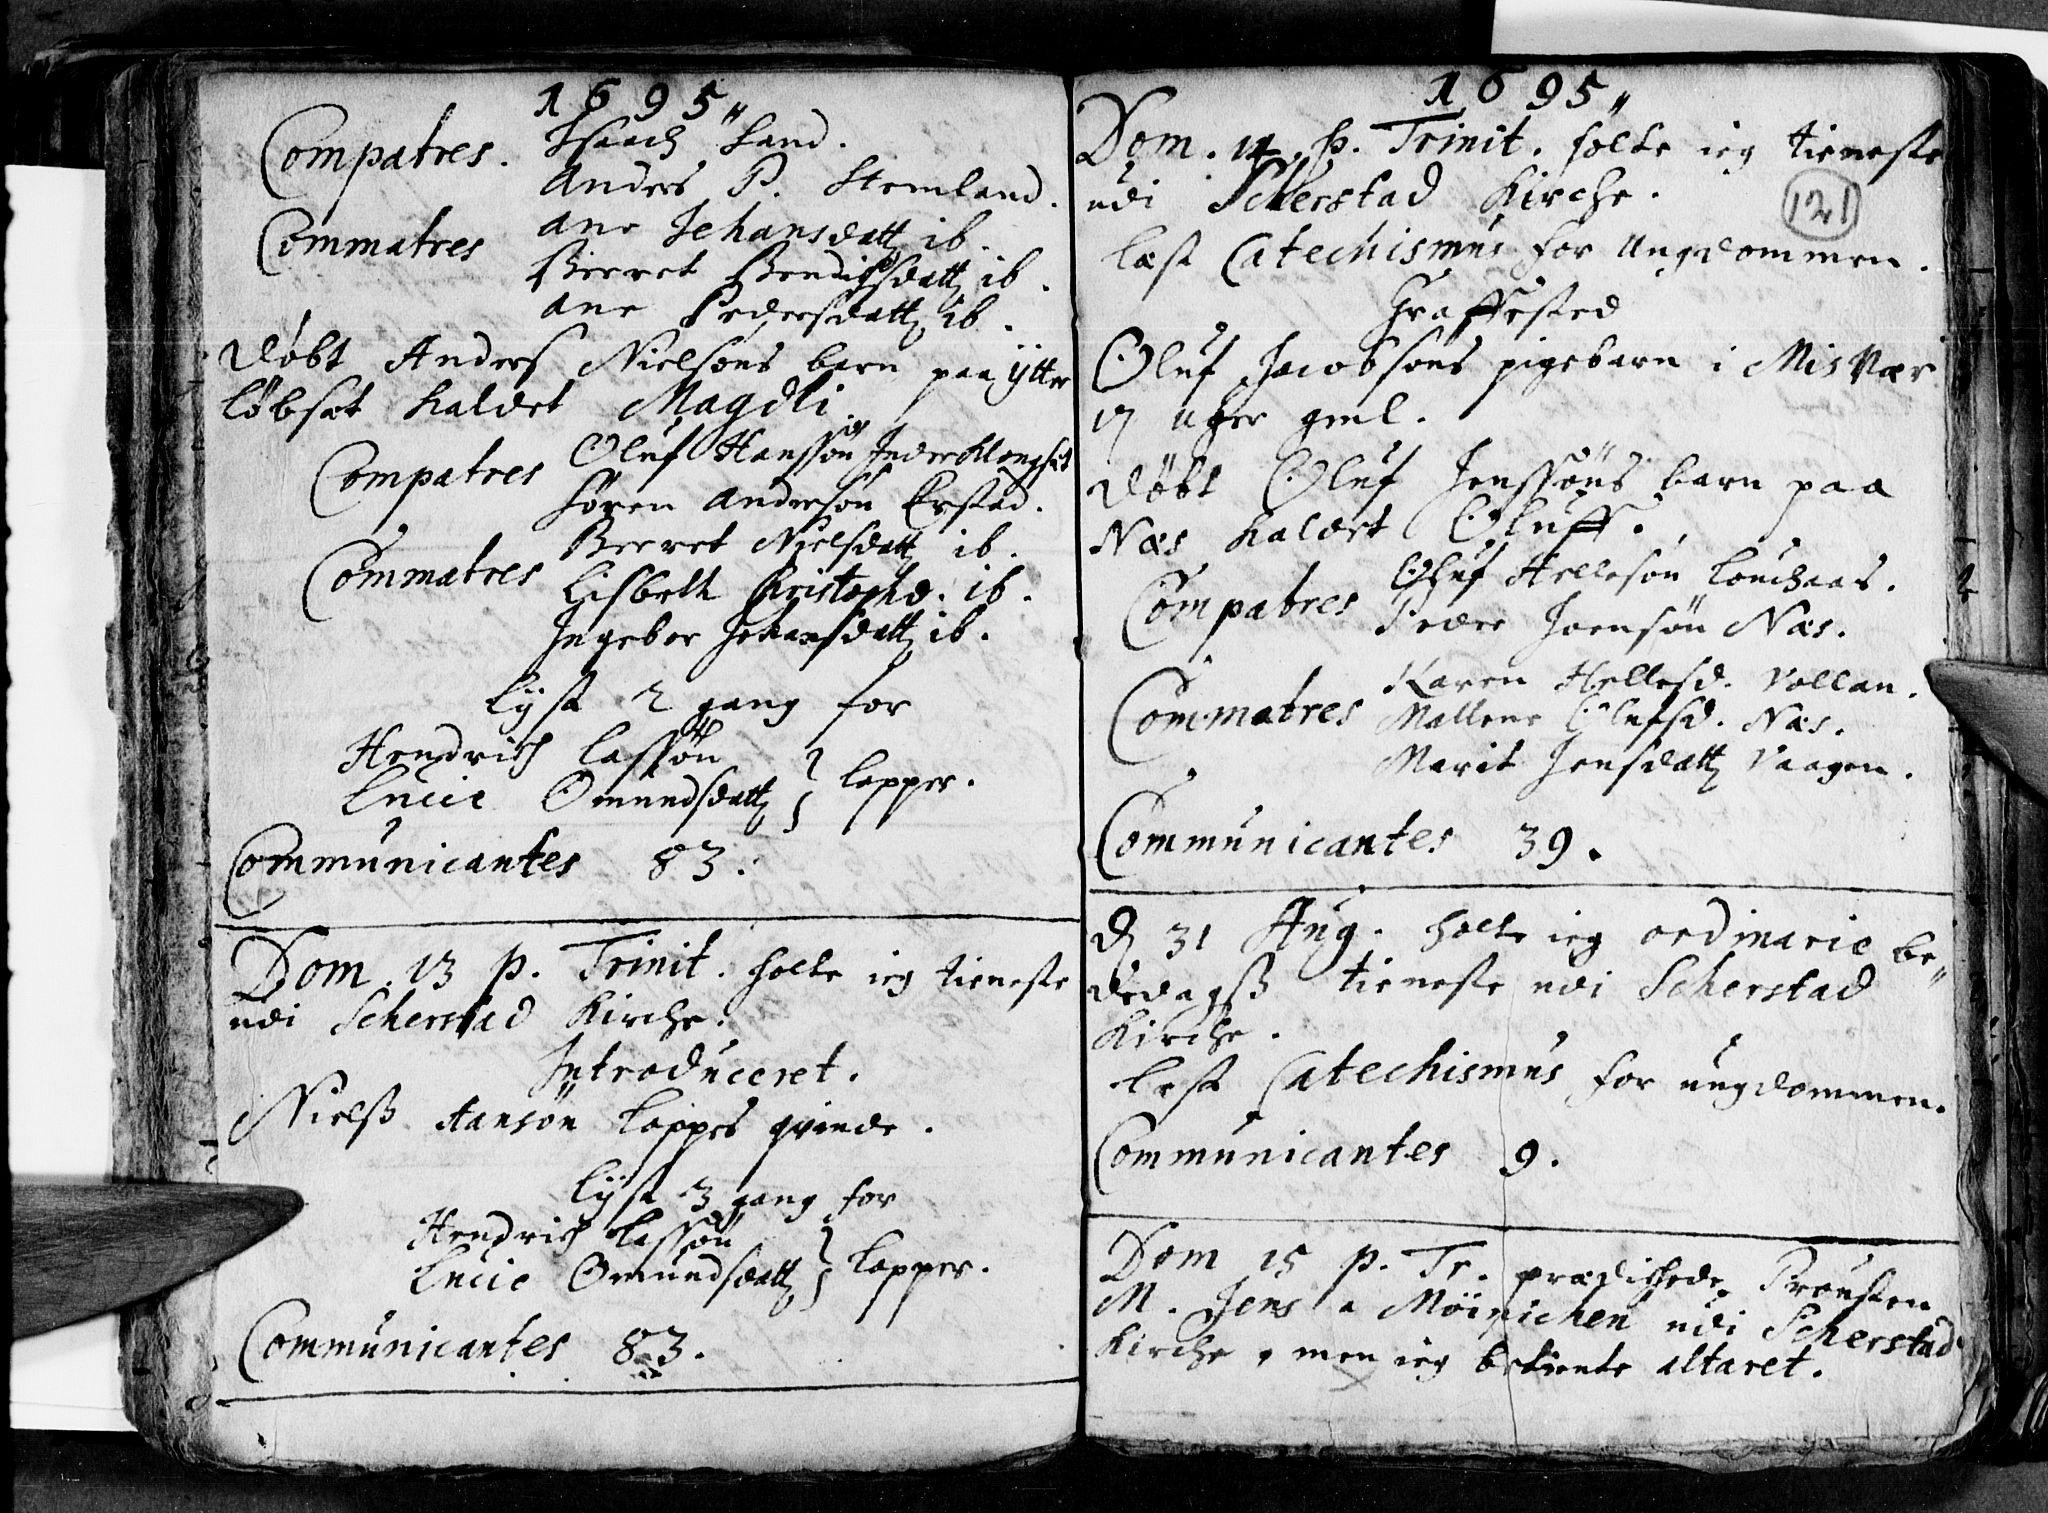 1695
Compatres. Isaach Sand.
Anders P. Stemland.
Commatres Ane Jehansdatt ib.
Berret Bendichsdatt ib.
Ane Pedersdatt ib.
Døbt Anders Nielsøns barn paa ÿtter
løbset kaldet Magdli
Compatres Oluf Hanssøn Inder Klongset
Søren Andersøn Erstad.
Berret Nielsdatt ib.
Commatres Lisbeth Christophd. ib.
Ingebor Johansdatt ib.
Lÿst 2 gang for
Hendrich Lassøn
Lucie Omundsdatt } Lapper.
Communicantes 83.
Dom. 13 p. Trinit. holte ieg tieneste
udi Scherstad Kirche.
Introduceret.
Nielß Hansøn Lappes qvinde.
Lÿst 3 gang for
Hendrich Lassøn
Lucie Omundsdatt } Lapper.
Communicantes 83.
1695
Dom. 14. p. Trinit. holte ieg tieneste
udi Scherstad Kirche.
121
læst Catechismus for Ungdommen.
Graffested
Oluf Jacobsøns pigebarn i Misvær
17 uger gml.
Døbt Oluf Jenssøns barn paa
Næs kaldet Oluff.
Compatres Oluf Hellesøn
Peder Joensøn Næs.
Karen Hellesd. Vollan.
Commatres Mallene Olufsd. Næs.
Marit Jensdatt Vaagen.
Communicantes 39.
D 31 Aug. holte ieg ordinarie be„
dedagß tieneste udi Scherstad
Kirche.
lest Catechismus for ungdommen.
Communicantes 9.
Dom 15 p. Tr. prædichede Prousten
M. Jens a Möinichen udi Scherstad
Kirche, men ieg betiente altaret.